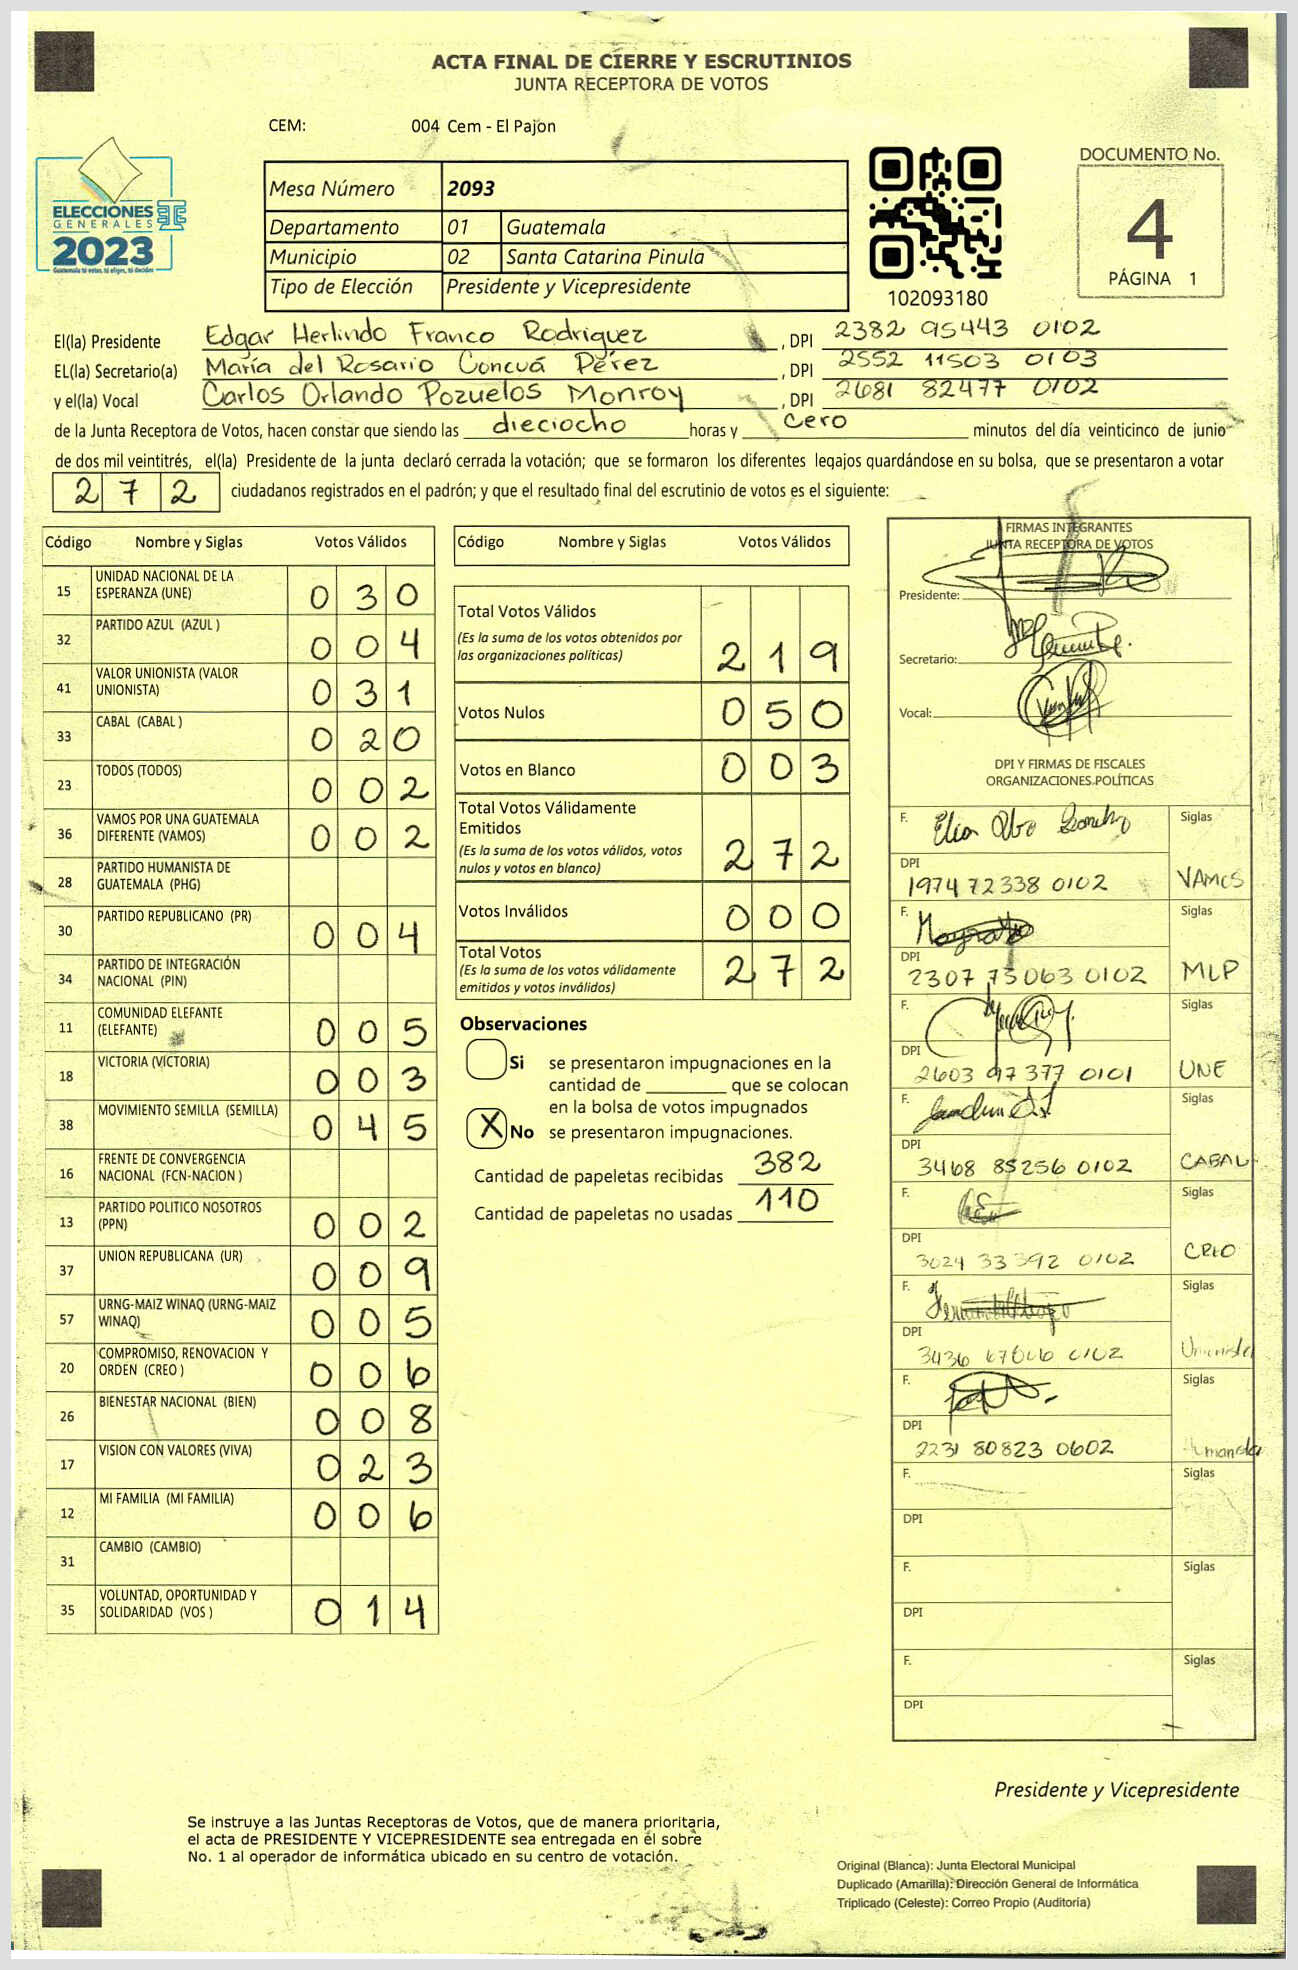 ACTA FINAL DE CIERRE Y ESCRUTINIOS
JUNTA RECEPTORA DE VOTOS
CEM: 004 Cem - El Pajon
ELECCIONES
GENERALES
2023
Guatemala tú votas, tú eliges, tú decides
Mesa Número 2093
Departamento 01 Guatemala
Municipio 02 Santa Catarina Pinula
Tipo de Elección Presidente y Vicepresidente
102093180
DOCUMENTO No.
4
PÁGINA 1
El(la) Presidente Edgar Herlindo Franco Rodriguez , DPI 2382 95443 0102
EL(la) Secretario(a) María del Rosario Concuá Pérez , DPI 2552 11503 0103
y el(la) Vocal Carlos Orlando Pozuelos Monroy , DPI 2681 82477 0102
de la Junta Receptora de Votos, hacen constar que siendo las dieciocho horas y cero minutos del día veinticinco de junio
de dos mil veintitrés, el(la) Presidente de la junta declaró cerrada la votación; que se formaron los diferentes legajos quardándose en su bolsa, que se presentaron a votar
272 ciudadanos registrados en el padrón; y que el resultado final del escrutinio de votos es el siguiente:
Código Nombre y Siglas Votos Válidos
15 UNIDAD NACIONAL DE LA
ESPERANZA (UNE) 030
32 PARTIDO AZUL (AZUL ) 004
41 VALOR UNIONISTA (VALOR
UNIONISTA) 031
33 CABAL (CABAL ) 020
23 TODOS (TODOS) 002
36 VAMOS POR UNA GUATEMALA
DIFERENTE (VAMOS) 002
28 PARTIDO HUMANISTA DE
GUATEMALA (PHG)
30 PARTIDO REPUBLICANO (PR) 004
34 PARTIDO DE INTEGRACIÓN
NACIONAL (PIN)
11 COMUNIDAD ELEFANTE
(ELEFANTE) 005
18 VICTORIA (VICTORIA) 003
38 MOVIMIENTO SEMILLA (SEMILLA) 045
16 FRENTE DE CONVERGENCIA
NACIONAL (FCN-NACION )
13 PARTIDO POLITICO NOSOTROS
(PPN) 002
37 UNION REPUBLICANA (UR) 009
57 URNG-MAIZ WINAQ (URNG-MAIZ
WINAQ) 005
20 COMPROMISO, RENOVACION Y
ORDEN (CREO ) 006
26 BIENESTAR NACIONAL (BIEN) 008
17 VISION CON VALORES (VIVA) 023
12 MI FAMILIA (MI FAMILIA) 006
31 CAMBIO (CAMBIO)
35 VOLUNTAD, OPORTUNIDAD Y
SOLIDARIDAD (VOS ) 014
Código Nombre y Siglas Votos Válidos
Total Votos Válidos
(Es la suma de los votos obtenidos por
las organizaciones políticas) 219
Votos Nulos 050
Votos en Blanco 003
Total Votos Válidamente
Emitidos
(Es la suma de los votos válidos, votos
nulos y votos en blanco) 272
Votos Inválidos 000
Total Votos
(Es la suma de los votos válidamente
emitidos y votos inválidos) 272
Observaciones
Si se presentaron impugnaciones en la
cantidad de que se colocan
en la bolsa de votos impugnados
X No se presentaron impugnaciones.
Cantidad de papeletas recibidas 382
Cantidad de papeletas no usadas 110
FIRMAS INTEGRANTES
JUNTA RECEPTORA DE VOTOS
Presidente:
Secretario:
Vocal:
DPI Y FIRMAS DE FISCALES
ORGANIZACIONES POLÍTICAS
F. Siglas
DPI
1974 72338 0102 VAMOS
F. Siglas
DPI
2307 75063 0102 MLP
F. Siglas
DPI
2603 97377 0101 UNE
F. Siglas
DPI
3468 85256 0102 CABAL
F. Siglas
DPI
3024 33392 0102 CREO
F. Siglas
DPI
3436 0102 Unionista
F. Siglas
DPI
2231 80823 0602 Humanista
F. Siglas
DPI
F. Siglas
DPI
F. Siglas
DPI
Presidente y Vicepresidente
Se instruye a las Juntas Receptoras de Votos, que de manera prioritaria,
el acta de PRESIDENTE Y VICEPRESIDENTE sea entregada en él sobre
No. 1 al operador de informática ubicado en su centro de votación.
Original (Blanca): Junta Electoral Municipal
Duplicado (Amarilla): Dirección General de Informática
Triplicado (Celeste): Correo Propio (Auditoría)